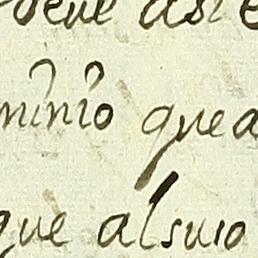 deve asi e
minio que a
que al suio